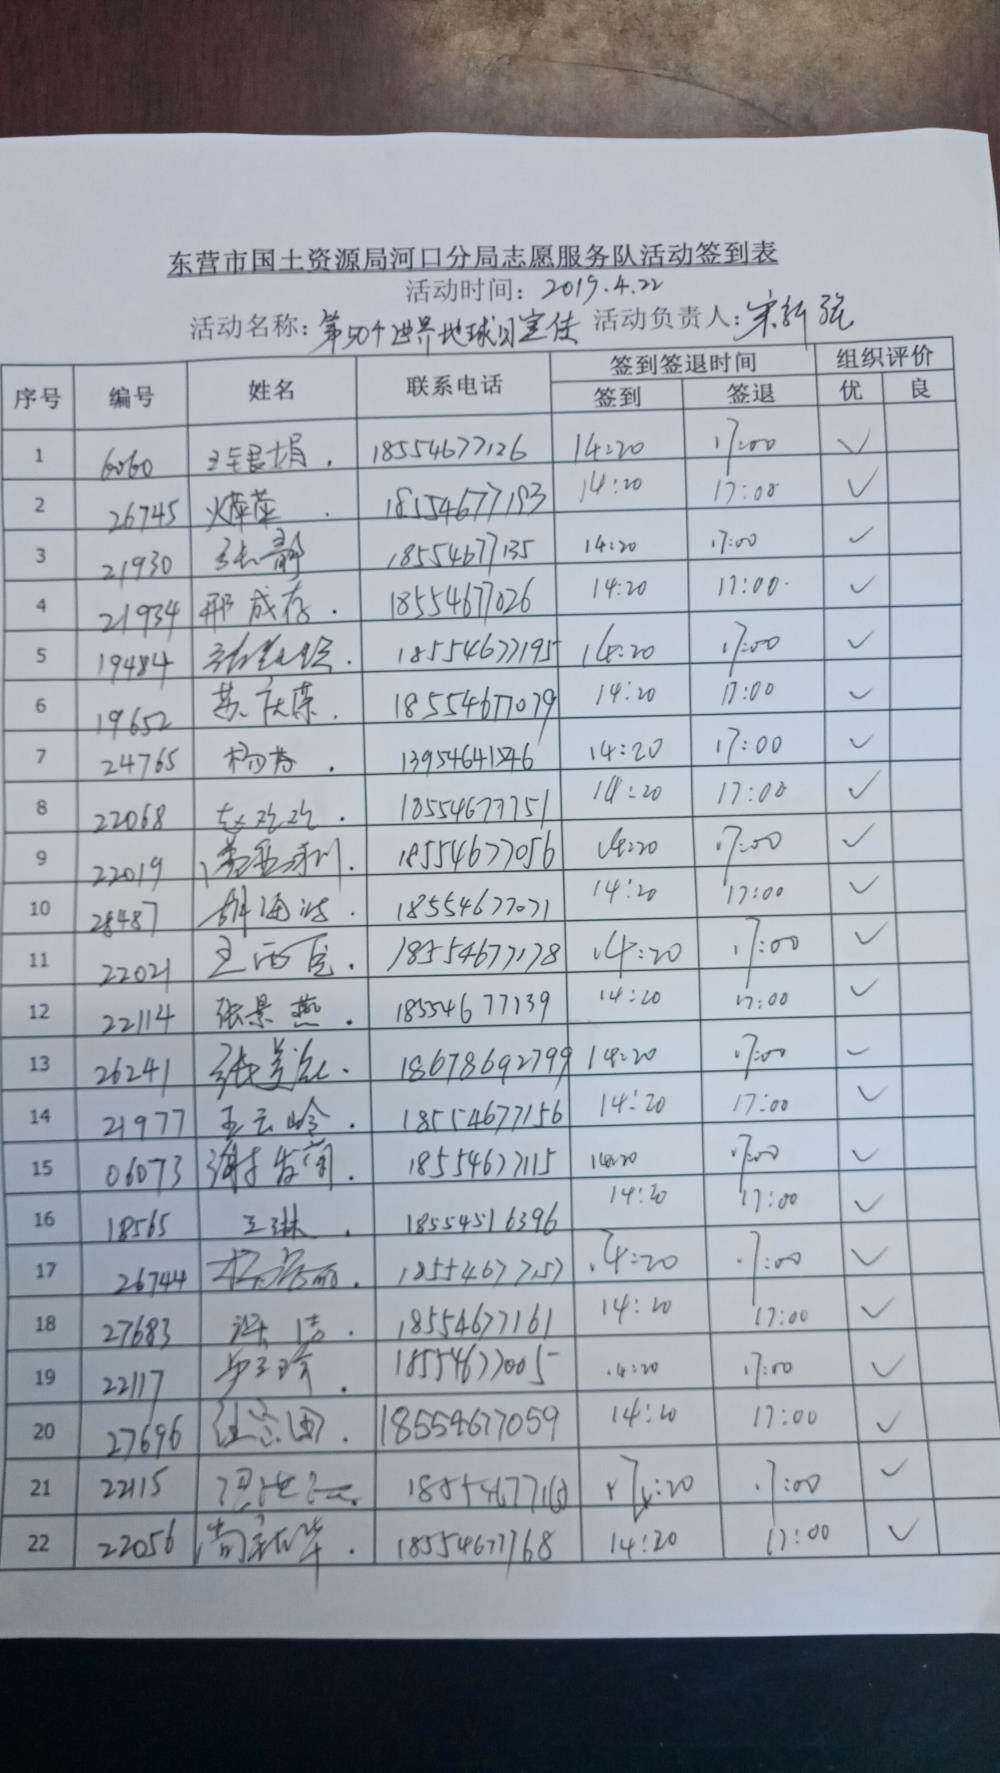 东营市国土资源局河口分局志愿服务队活动签到表
活动时间：2019.4.22
活动名称：第50个世界地球日宣传 活动负责人：宋新强
序号 编号 姓名 联系电话 签到签退时间 组织评价
签到 签退 优 良
1 6060 18554677126 14:20 17:00 ✓
2 26745 18554677193 14:20 17:00 ✓
3 21930 张静 18554677135 14:20 17:00 ✓
4 21934 邢成存. 18554677026 14:20 17:00 ✓
5 19484 18554677195 14:20 17:00 ✓
6 19652 苏庆荣. 18554677079 14:20 17:00 ✓
7 24765 14:20 17:00 ✓
8 22068 18554677751 14:20 17:00 ✓
9 22019 18554677056 14:20 17:00 ✓
10 28487 18554677071 14:20 17:00 ✓
11 22021 18554677178 14:20 17:00 ✓
12 22114 张景燕. 18554677139 14:20 17:00 ✓
13 26241 18678692799 14:20 17:00 ✓
14 21977 王云岭. 18554677156 14:20 17:00 ✓
15 06073 18554677115 14:20 17:00 ✓
16 18565 王琳. 18554516396 14:20 17:00 ✓
17 26744 18554677157 14:20 17:00 ✓
18 27683 18554677161 14:20 17:00 ✓
19 22117 18554677005 14:20 17:00 ✓
20 27696 18554677059 14:20 17:00 ✓
21 22115 14:20 17:00 ✓
22 22056 18554677768 14:20 17:00 ✓